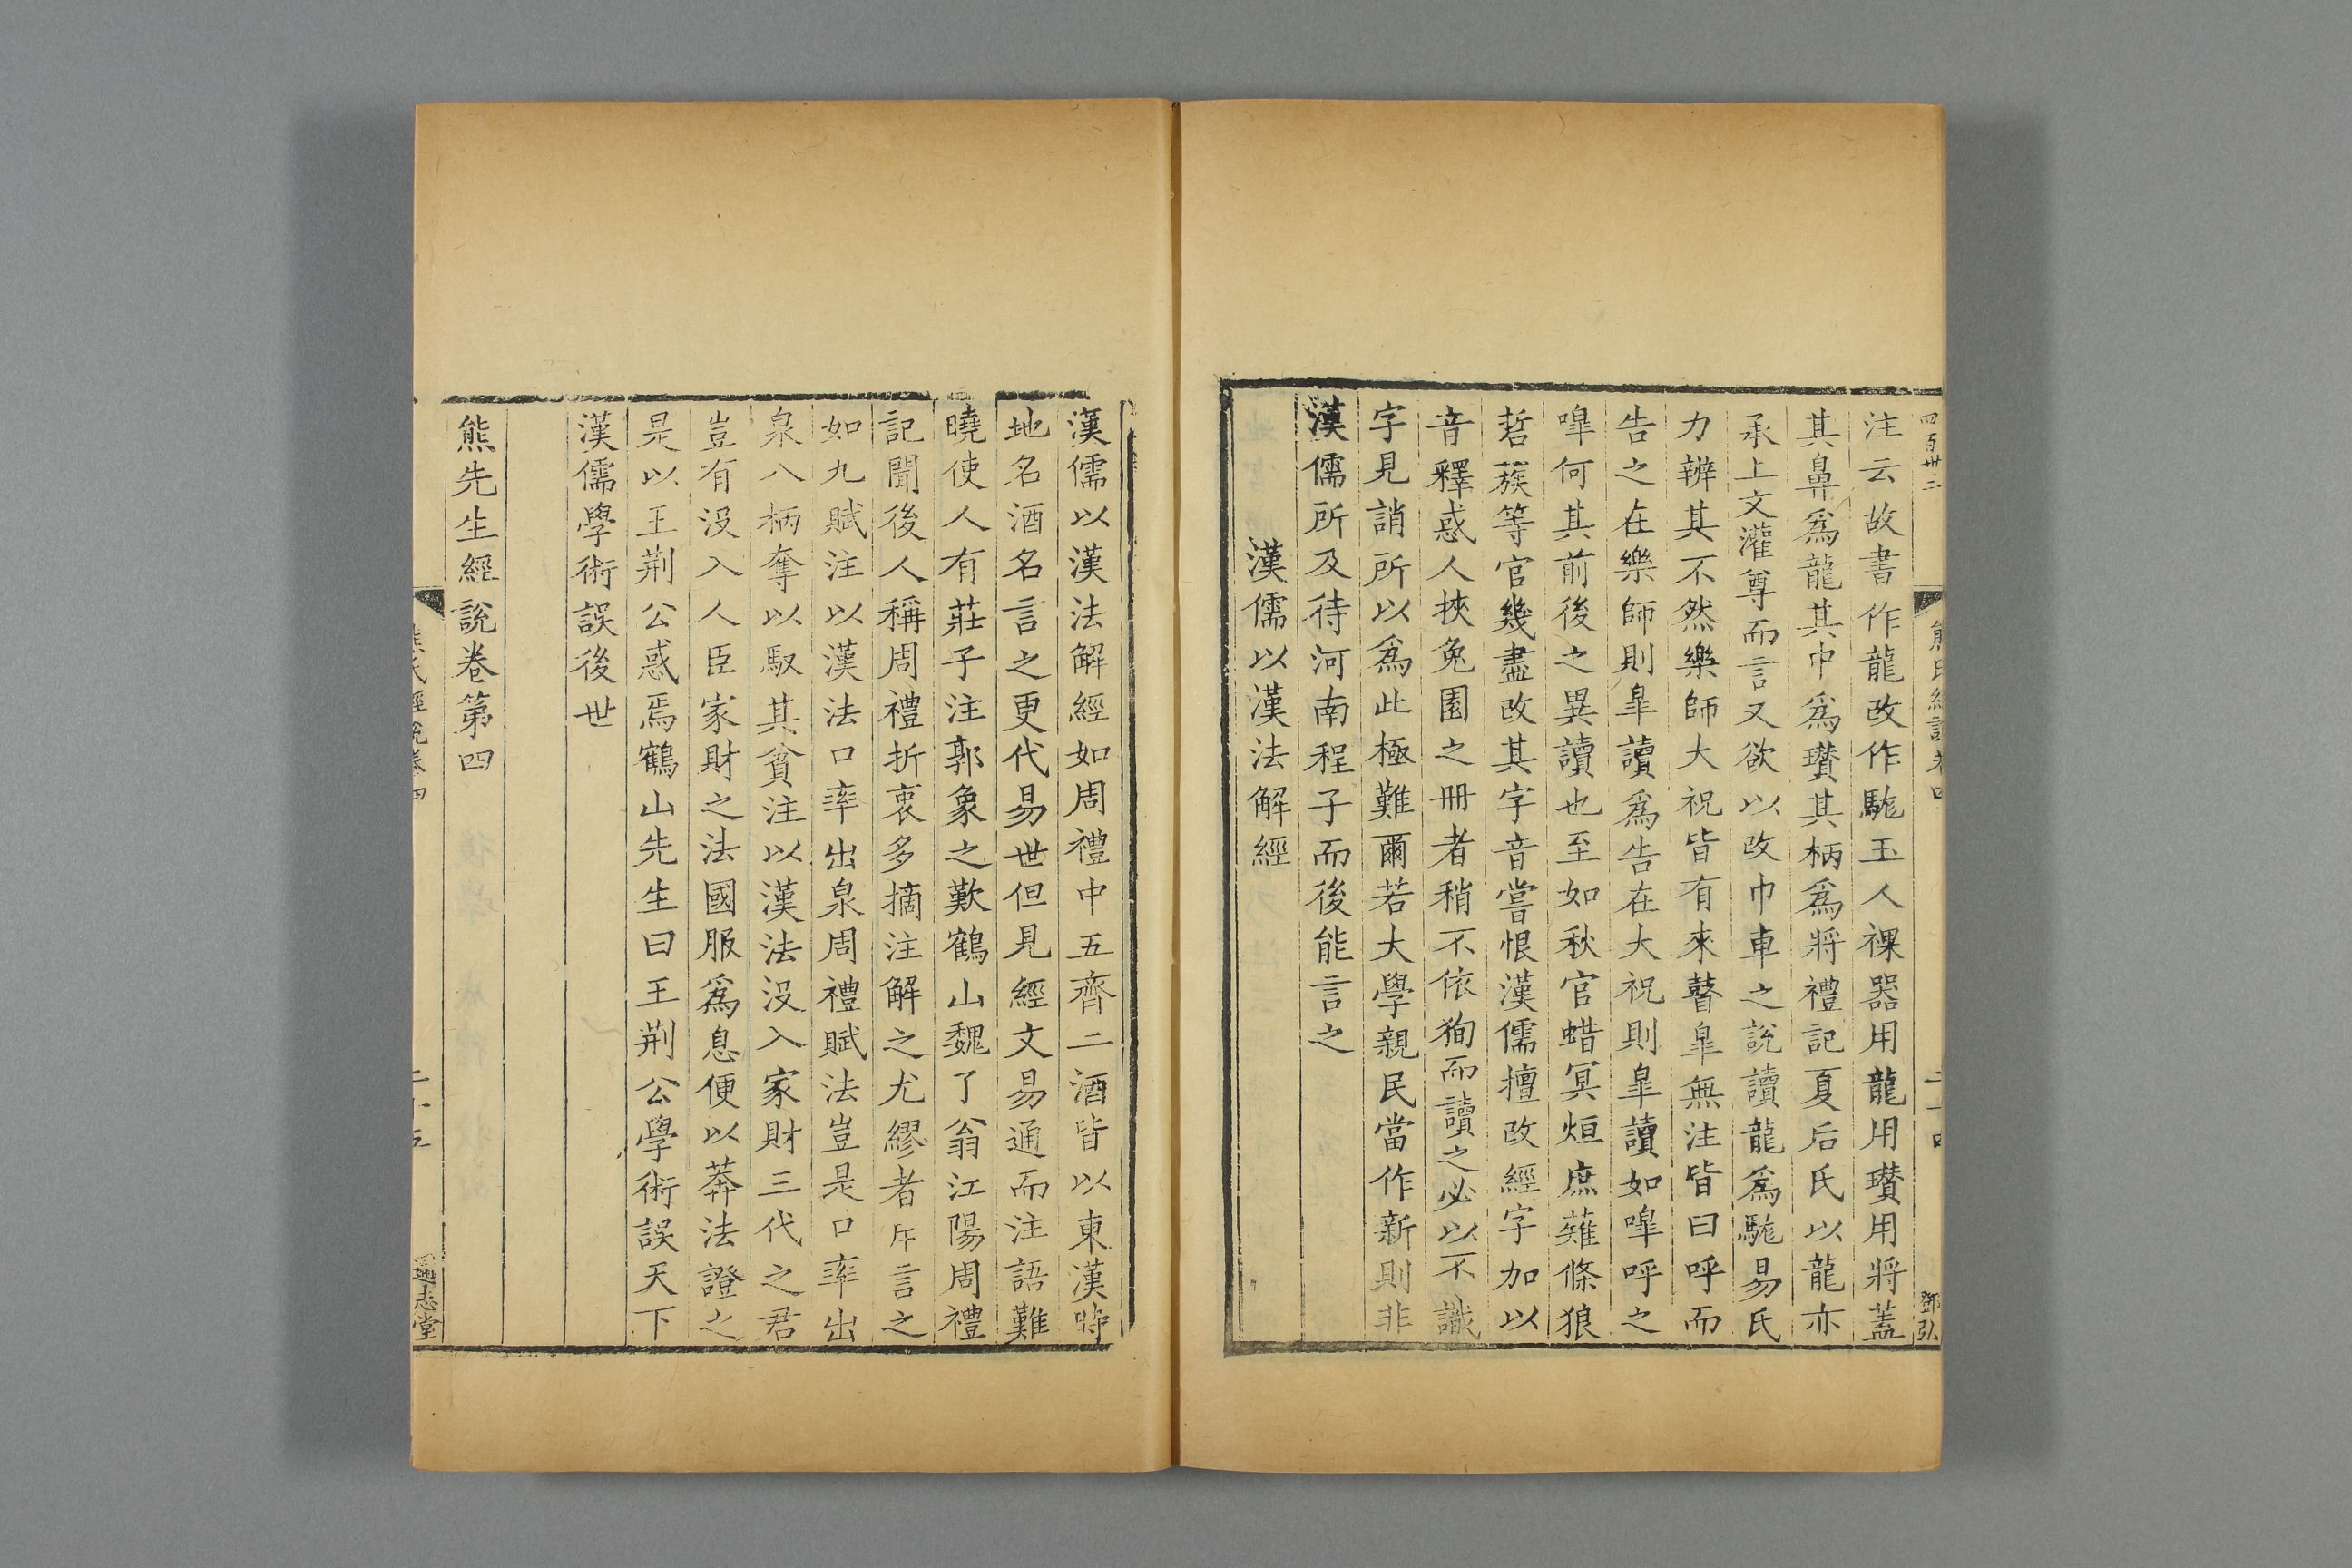 四百卅二
熊氏經說卷四
二十四
鄧弘
注云故書作龍改作駹玉人祼器用龍用瓚用將蓋
其鼻爲龍其中爲瓚其柄爲將禮記夏后氏以龍亦
承上文灌尊而言又欲以改巾車之說讀龍爲駹易氏
力辨其不然樂師大祝皆有來瞽臯無注皆曰呼而
告之在樂師則臯讀爲告在大祝則臯讀如嘷呼之
嘷何其前後之異讀也至如秋官蜡冥烜庶薙條狼
硩蔟等官幾盡改其字音嘗恨漢儒擅改經字加以
音釋惑人挾兔園之冊者稍不依狥而讀之必以不識
字見誚所以爲此極難爾若大學親民當作新則非
漢儒所及待河南程子而後能言之
漢儒以漢法解經
漢儒以漢法解經如周禮中五齊二酒皆以東漢時
地名酒名言之更代易世但見經文易通而注語難
曉使人有莊子注郭象之歎鶴山魏了翁江陽周禮
記聞後人稱周禮折衷多摘注解之尤繆者斥言之
如九賦注以漢法口率出泉周禮賦法豈是口率出
泉八柄奪以馭其貧注以漢法沒入家財三代之君
豈有沒入人臣家財之法國服爲息便以莽法證之
是以王荆公惑焉鶴山先生曰王荆公學術誤天下
漢儒學術誤後世
熊先生經說卷第四
熊氏經說卷四
二十五
通志堂